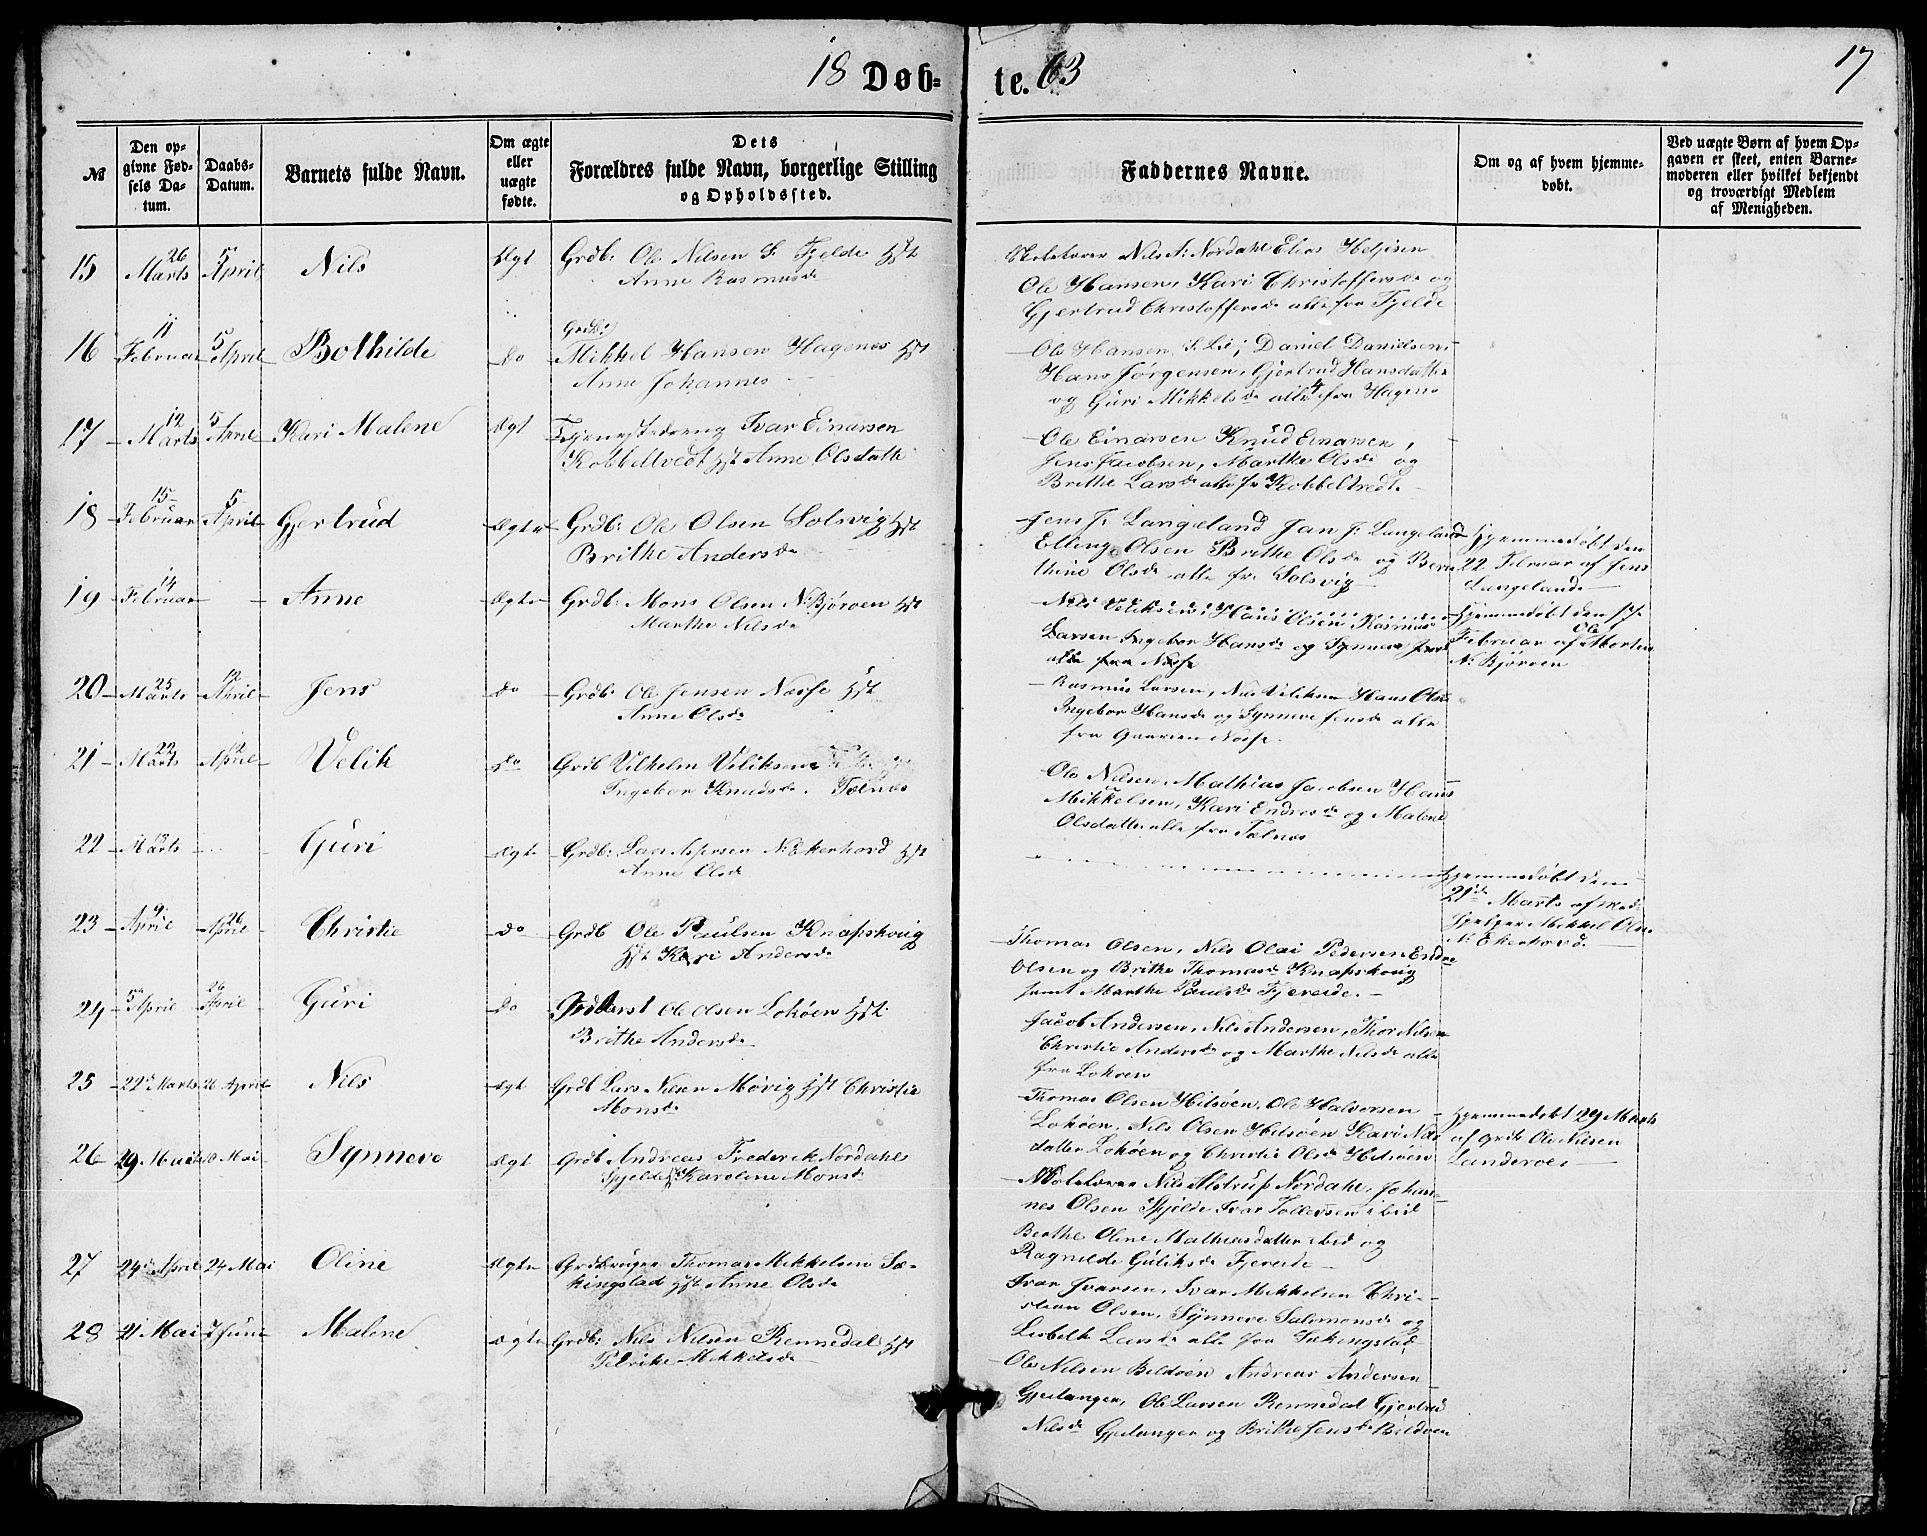 18 Døb-
te. 63
17
№
Den op-
givne Fød-
sels Da-
tum.
Daabs-
Datum.
Barnets fulde Navn.
Om ægte
eller
uægte
fødte.
Dets
Forældres fulde Navn, borgerlige Stilling
og Opholdssted.
Faddernes Navne.
Om og af hvem hjemme-
døbt.
Ved uægte Børn af hvem Op-
gaven er skeet, enten Barne-
moderen eller hvilket bekjendt
og troværdigt Medlem
af Menigheden.
15 26 Marts 5 April Nils Ægt Grdb: Ole Nilsen S. Fjelde Hst
Anne Rasmusd
Skolelærer Nils N: Nordahl Elias Heljesen
Ole Hansen, Kari Christoffersd og
Gjertrud Christoffersd alle fra Fjelde
16 11 Februar 5 April Bothilde do Grdb:
Mikkel Hansen Hagenes Hst
Anne Johannes
Ole Hansen S. Lie, Daniel Danielsen,
Hans Jørgensen, Gjertrud Hansdatter
og Guri Mikkelsd alle 4 fra Hagenes
17 12 Marts 5 April Kari Malene Ægt Tjenestedreng Ivar Einarsen
Kobbeltvedt Hst Anne Olsdatter
Ole Einarsen Knud Einarsen,
Jens Jacobsen, Marthe Olsd og
Brithe Larsd alle fr Kobbeltvedt
18 15 Februar 5 April Gjertrud Ægte Grdb: Ole Olsen Solsvig Hst
Brithe Andersd
Jens J. Langeland Jan J. Langeland
Elling Olsen Brithe Olsd og Bern
thine Olsd alle fra Solsvig
Hjemmedøbt den
22 Februar af Jens
Langeland
19 14 Februar Anne Ægte Grdb: Mons Olsen N: Bjørøen Hst
Marthe Nilsd
Nils Veliksen, Hans Olsen Rasmus
Larsen Ingebor Hansd og Synneve Jensd
alle fra Næsse
Hjemmedøbt den 17
Februar af Ole Morten
N: Bjørøen
20 25 Marts 12 April Jens do Grdb: Ole Jensen Næsse Hst
Anne Olsd
Rasmus Larsen, Nils Veliksen Hans Olsen
Ingebor Hansd og Synneve Jensd alle
fra Gaarden Næsse
21 22 Marts 12 April Velik do Grdb Vilhelm Veliksen
Ingebor Knudsd. Tælnæs
Ole Nilsen, Mathias Jacobsen Hans
Mikkelsen, Kari Endresd og Malene
Olsdatter alle fra Tælnæs
22 13 Marts Guri Ægte Grdb: Lars Aspersen N: Ekerhovd Hst
Anne Olsd
Hjemmedøbt den
21de Marts af Med-
hjelper Mikkel Olsen
N: Ekerhovd
23 9 April 26 April Christie do Grdb Ole Paulsen Knapskoug
Hst Kari Andersd
Thomas Olsen, Nils Olai Pedersen Endre
Olsen og Brithe Thomasd Knapskoug
samt Marthe Paulsd Fjereide.
24 5 April 26 April Guri do Grdb Ole Olsen Lokøen Hst:
Brithe Andersd
Jacob Andersen, Nils Andersen, Thor Nilsen
Christie Andersd og Marthe Nilsd alle
fra Lokøen
25 22 Marts 26 April Nils Ægt Grdb Lars Nilsen Møvig Hst Christie
Monsd
Thomas Olsen Hilsøen, Ole Halvorsen
Lokøen, Nils Olsen Hilsøen Kari Nils
datter Lokøen og Christie Olsd Hilsøen
Hjemmedøbt 29 Marts
af Grdb Ole Nilsen
Landeroes
26 29 Marts 10 Mai Synneve Ægt Grdb Andreas Frederik Nordahl
Spjeld Hst Karoline Monsd
Skolelærer Nils Alstrup Nordahl, Johan-
nes Olsen Spjelde Ivar Tollevsen ibid
Berthe Oline Mathiasdatter ibid og
Ragnilde Guliksd Fjereide
27 24 April 24 Mai Oline Ægte Grdbruger Thomas Mikkelsen Sæ-
kingstad Hst Anne Olsd
Ivar Ivarsen, Ivar Mikkelsen Chri-
stian Olsen, Synneve Salomonsd og
Lisbeth Larsd alle fra Sækingstad
28 21 Mai 7 Juni Malene Ægte Grdb: Nils Nilsen Rennedal Hst
Pelrike Mikkelsd
Ole Nilsen Bildøen Andreas Andersen
Gjelanger, Ole Larsen Rennedal Gjertrud
Nilsd Gjelanger og Brithe Jensd Bildøen